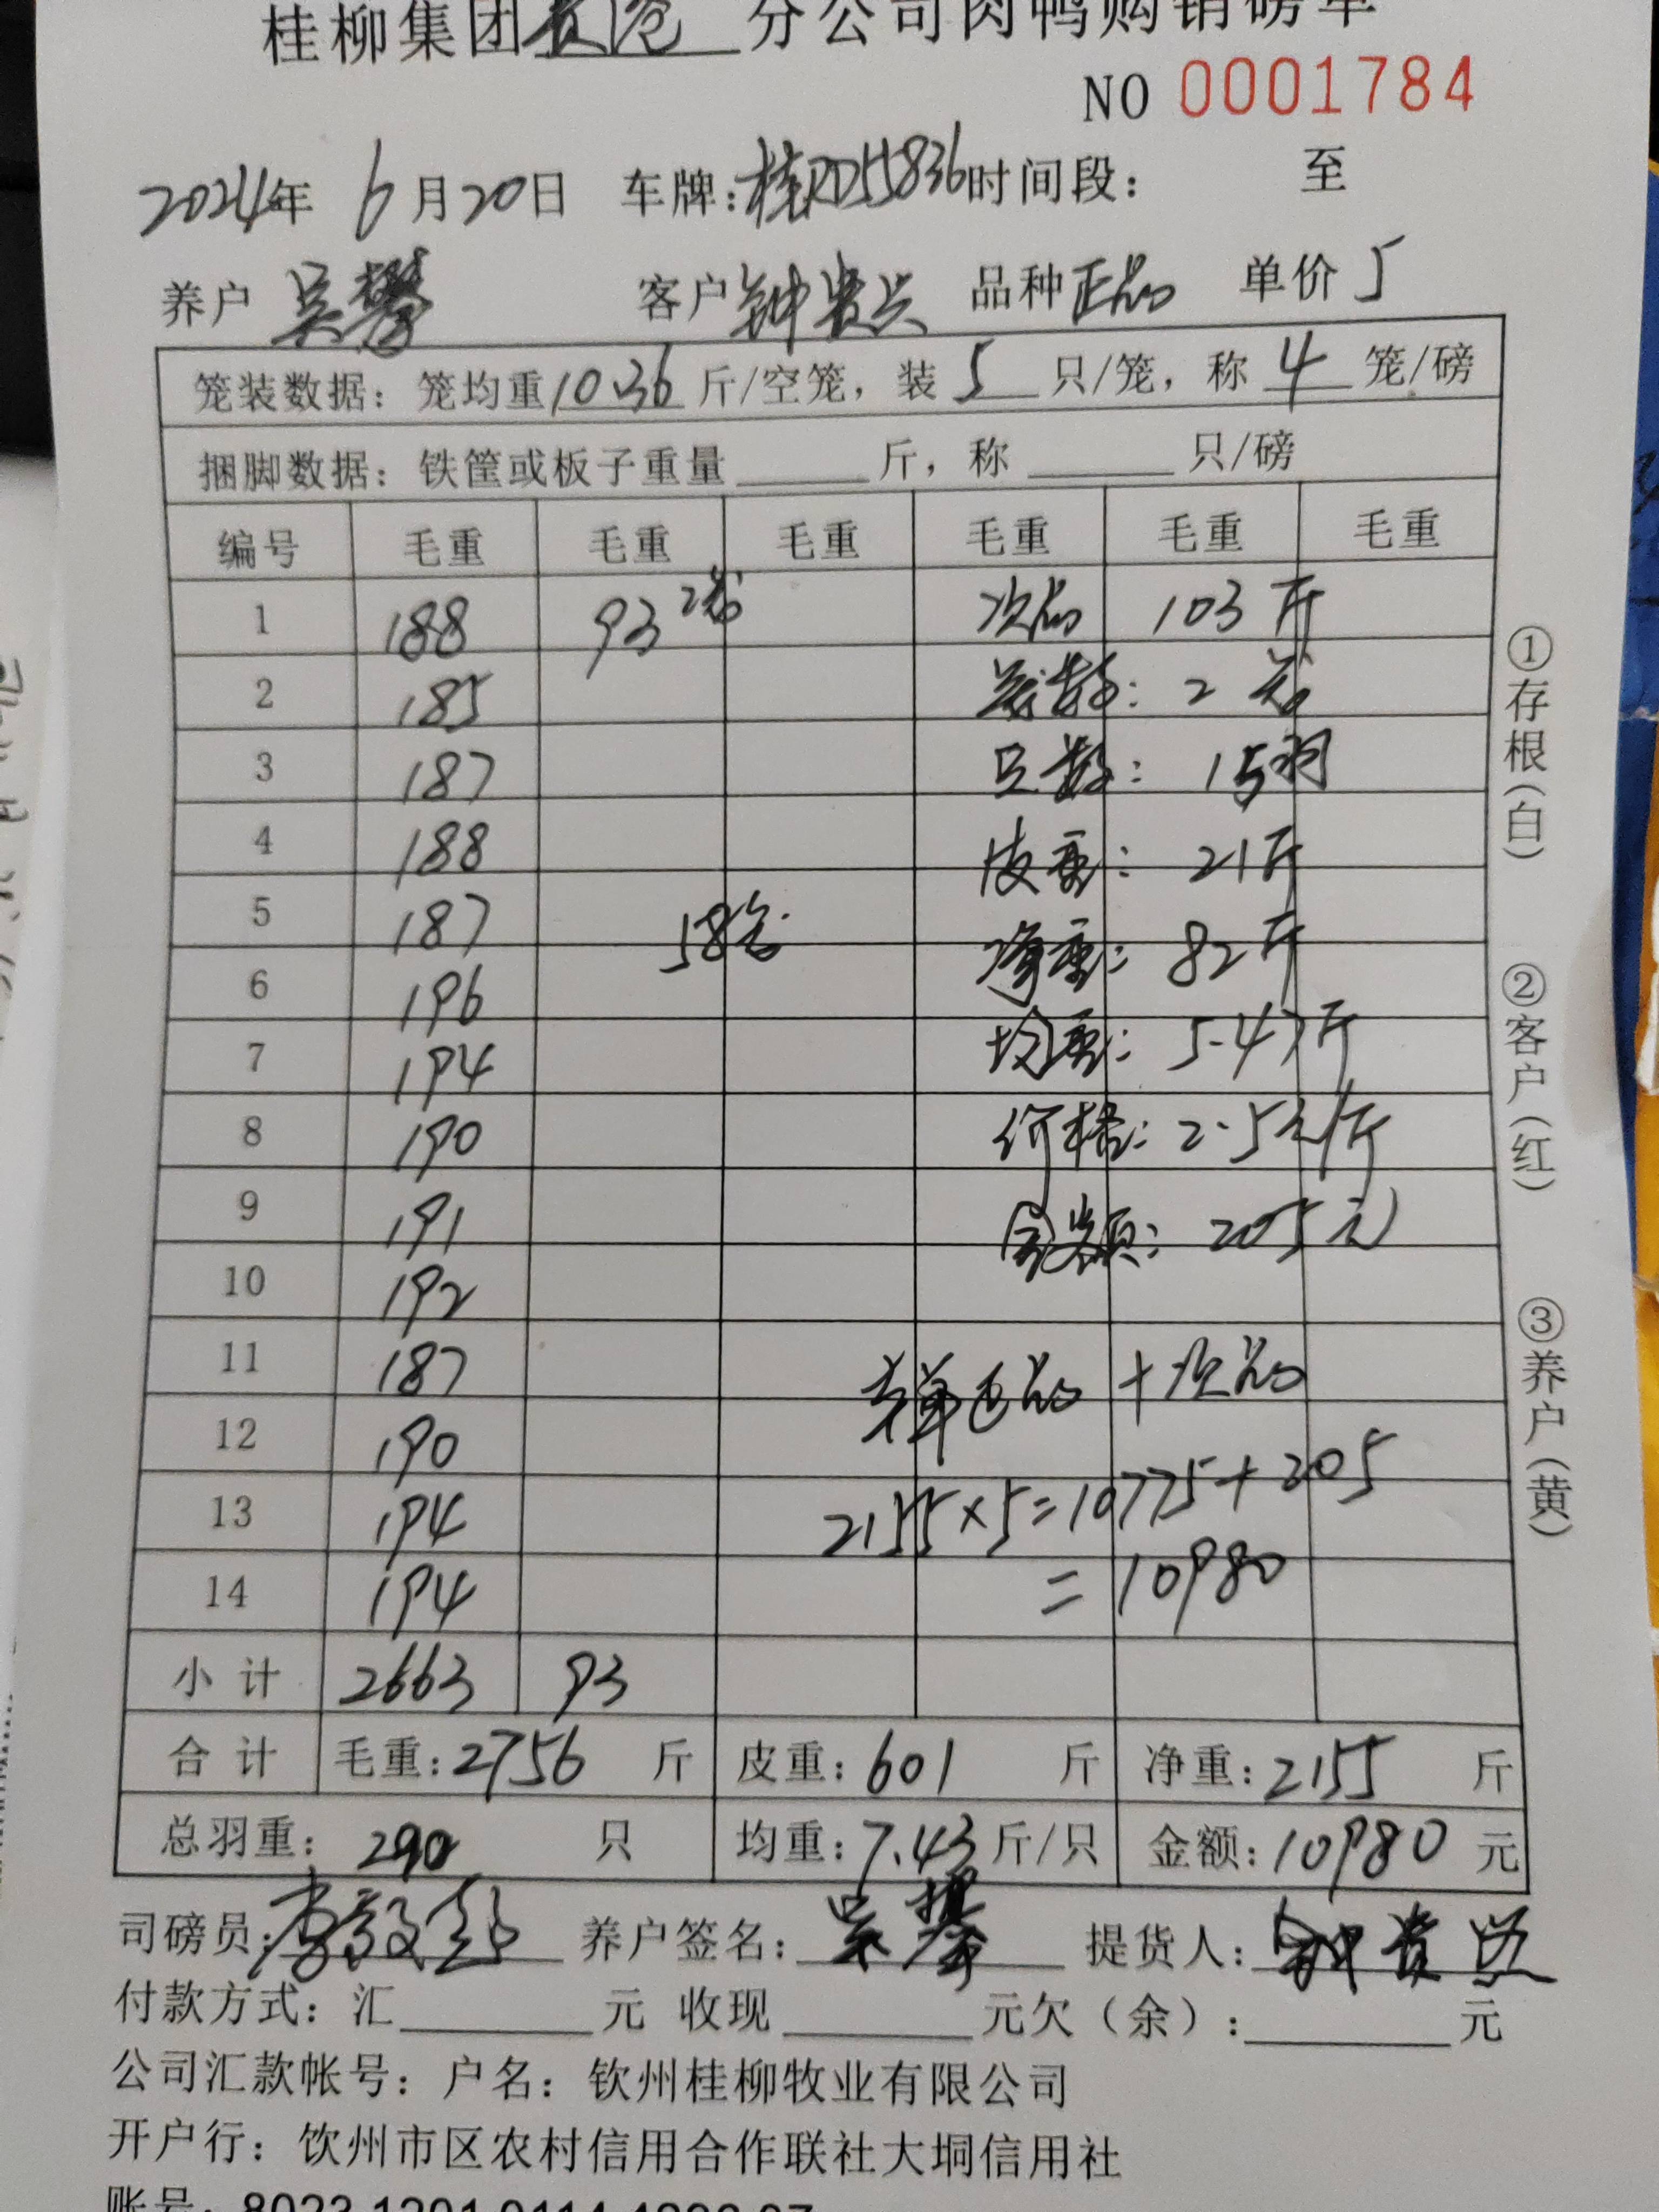 桂柳集团贵港分公司肉鸭购销磅单
NO 0001784
2024年 6月20日 车牌: 时间段: 至
养户 吴攀 客户 钟贵兴 品种 正品 单价 5
笼装数据: 笼均重10.36斤/空笼, 装5只/笼, 称4笼/磅
捆脚数据: 铁筐或板子重量 斤, 称 只/磅
编号 毛重 毛重 毛重 毛重 毛重 毛重
1 188 93 2笼 次品 103斤
2 185 笼数: 2笼
3 187 只数: 15羽
4 188 皮重: 21斤
5 187 58笼
6 196 净重: 82斤
7 194 均重: 5.47斤
8 190 价格: 2.5元/斤
9 191 金额: 205元
10 192
11 187 单正品 + 次品
12 190
13 194 2155×5=10775+205
14 194 =10980
小计 2663 93
合计 毛重: 2756 斤 皮重: 601 斤 净重: 2155 斤
总羽重: 290 只 均重: 7.43斤/只 金额: 10980 元
司磅员: 养户签名: 吴攀 提货人: 钟贵
付款方式: 汇 元 收现 元欠(余): 元
公司汇款帐号: 户名: 钦州桂柳牧业有限公司
开户行: 饮州市区农村信用合作联社大垌信用社
账号:
①存根(白)
②客户(红)
③养户(黄)